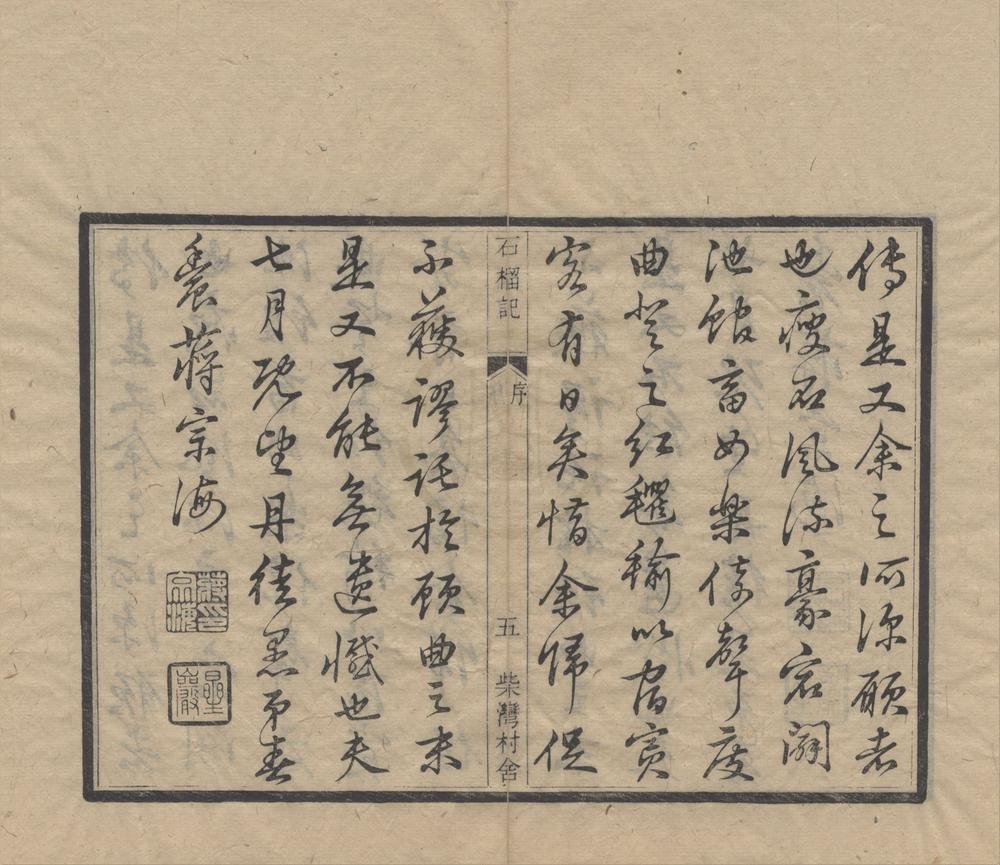 傳是又余之所深願者
也瘦石風流豪宕闢
池館畜女樂倚聲度
曲登之紅氍毹以賓
客有日矣惜余歸促
石榴記
序
五
柴灣村舍
不獲謬託於顧曲之末
是又不能無遺憾也夫
七月既望丹徒愚弟春
農蔣宗海
蔣印宗海
曐巖